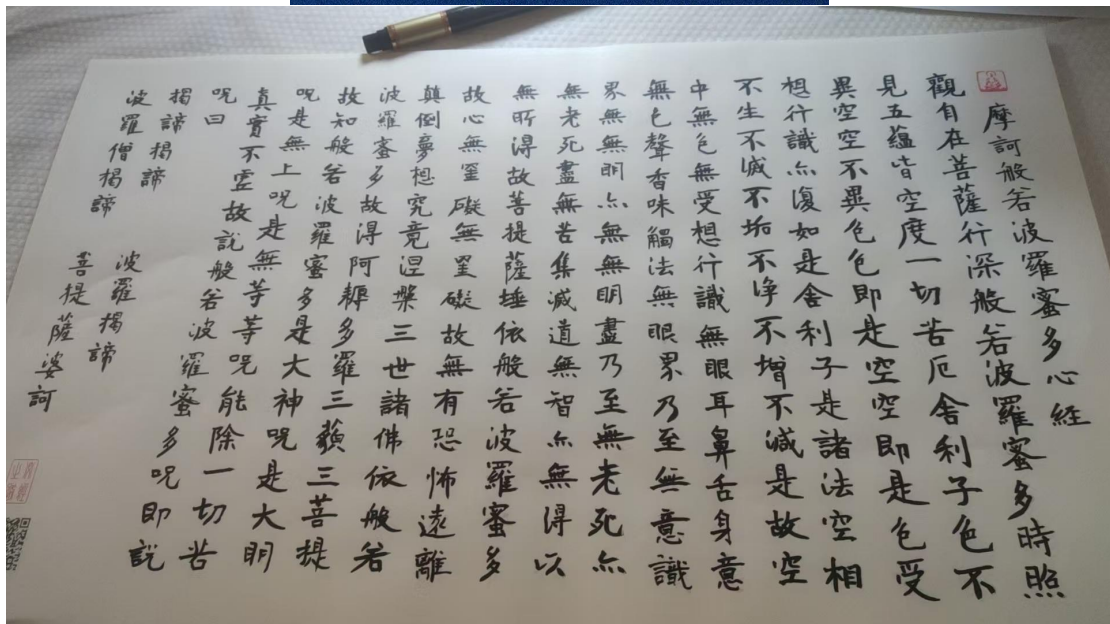 摩訶般若波羅蜜多心経
觀自在菩薩行深般若波羅蜜多時照
見五蘊皆空度一切苦厄舍利子色不
異空空不異色色即是空空即是色受
想行識亦復如是舍利子是諸法空相
不生不滅不垢不淨不增不減是故空
中無色無受想行識無眼耳鼻舌身意
無色聲香味觸法無眼界乃至無意識
界無無明亦無無明盡乃至無老死亦
無老死盡無苦集滅道無智亦無得以
無所得故菩提薩埵依般若波羅蜜多
故心無罣礙無罣礙故無有恐怖遠離
顛倒夢想究竟涅槃三世諸佛依般若
波羅蜜多故得阿耨多羅三藐三菩提
故知般若波羅蜜多是大神呪是大明
呪是無上呪是無等等呪能除一切苦
真實不虛故說般若波羅蜜多呪即說
呪曰
揭諦揭諦 波羅揭諦
波羅僧揭諦 菩提薩婆訶